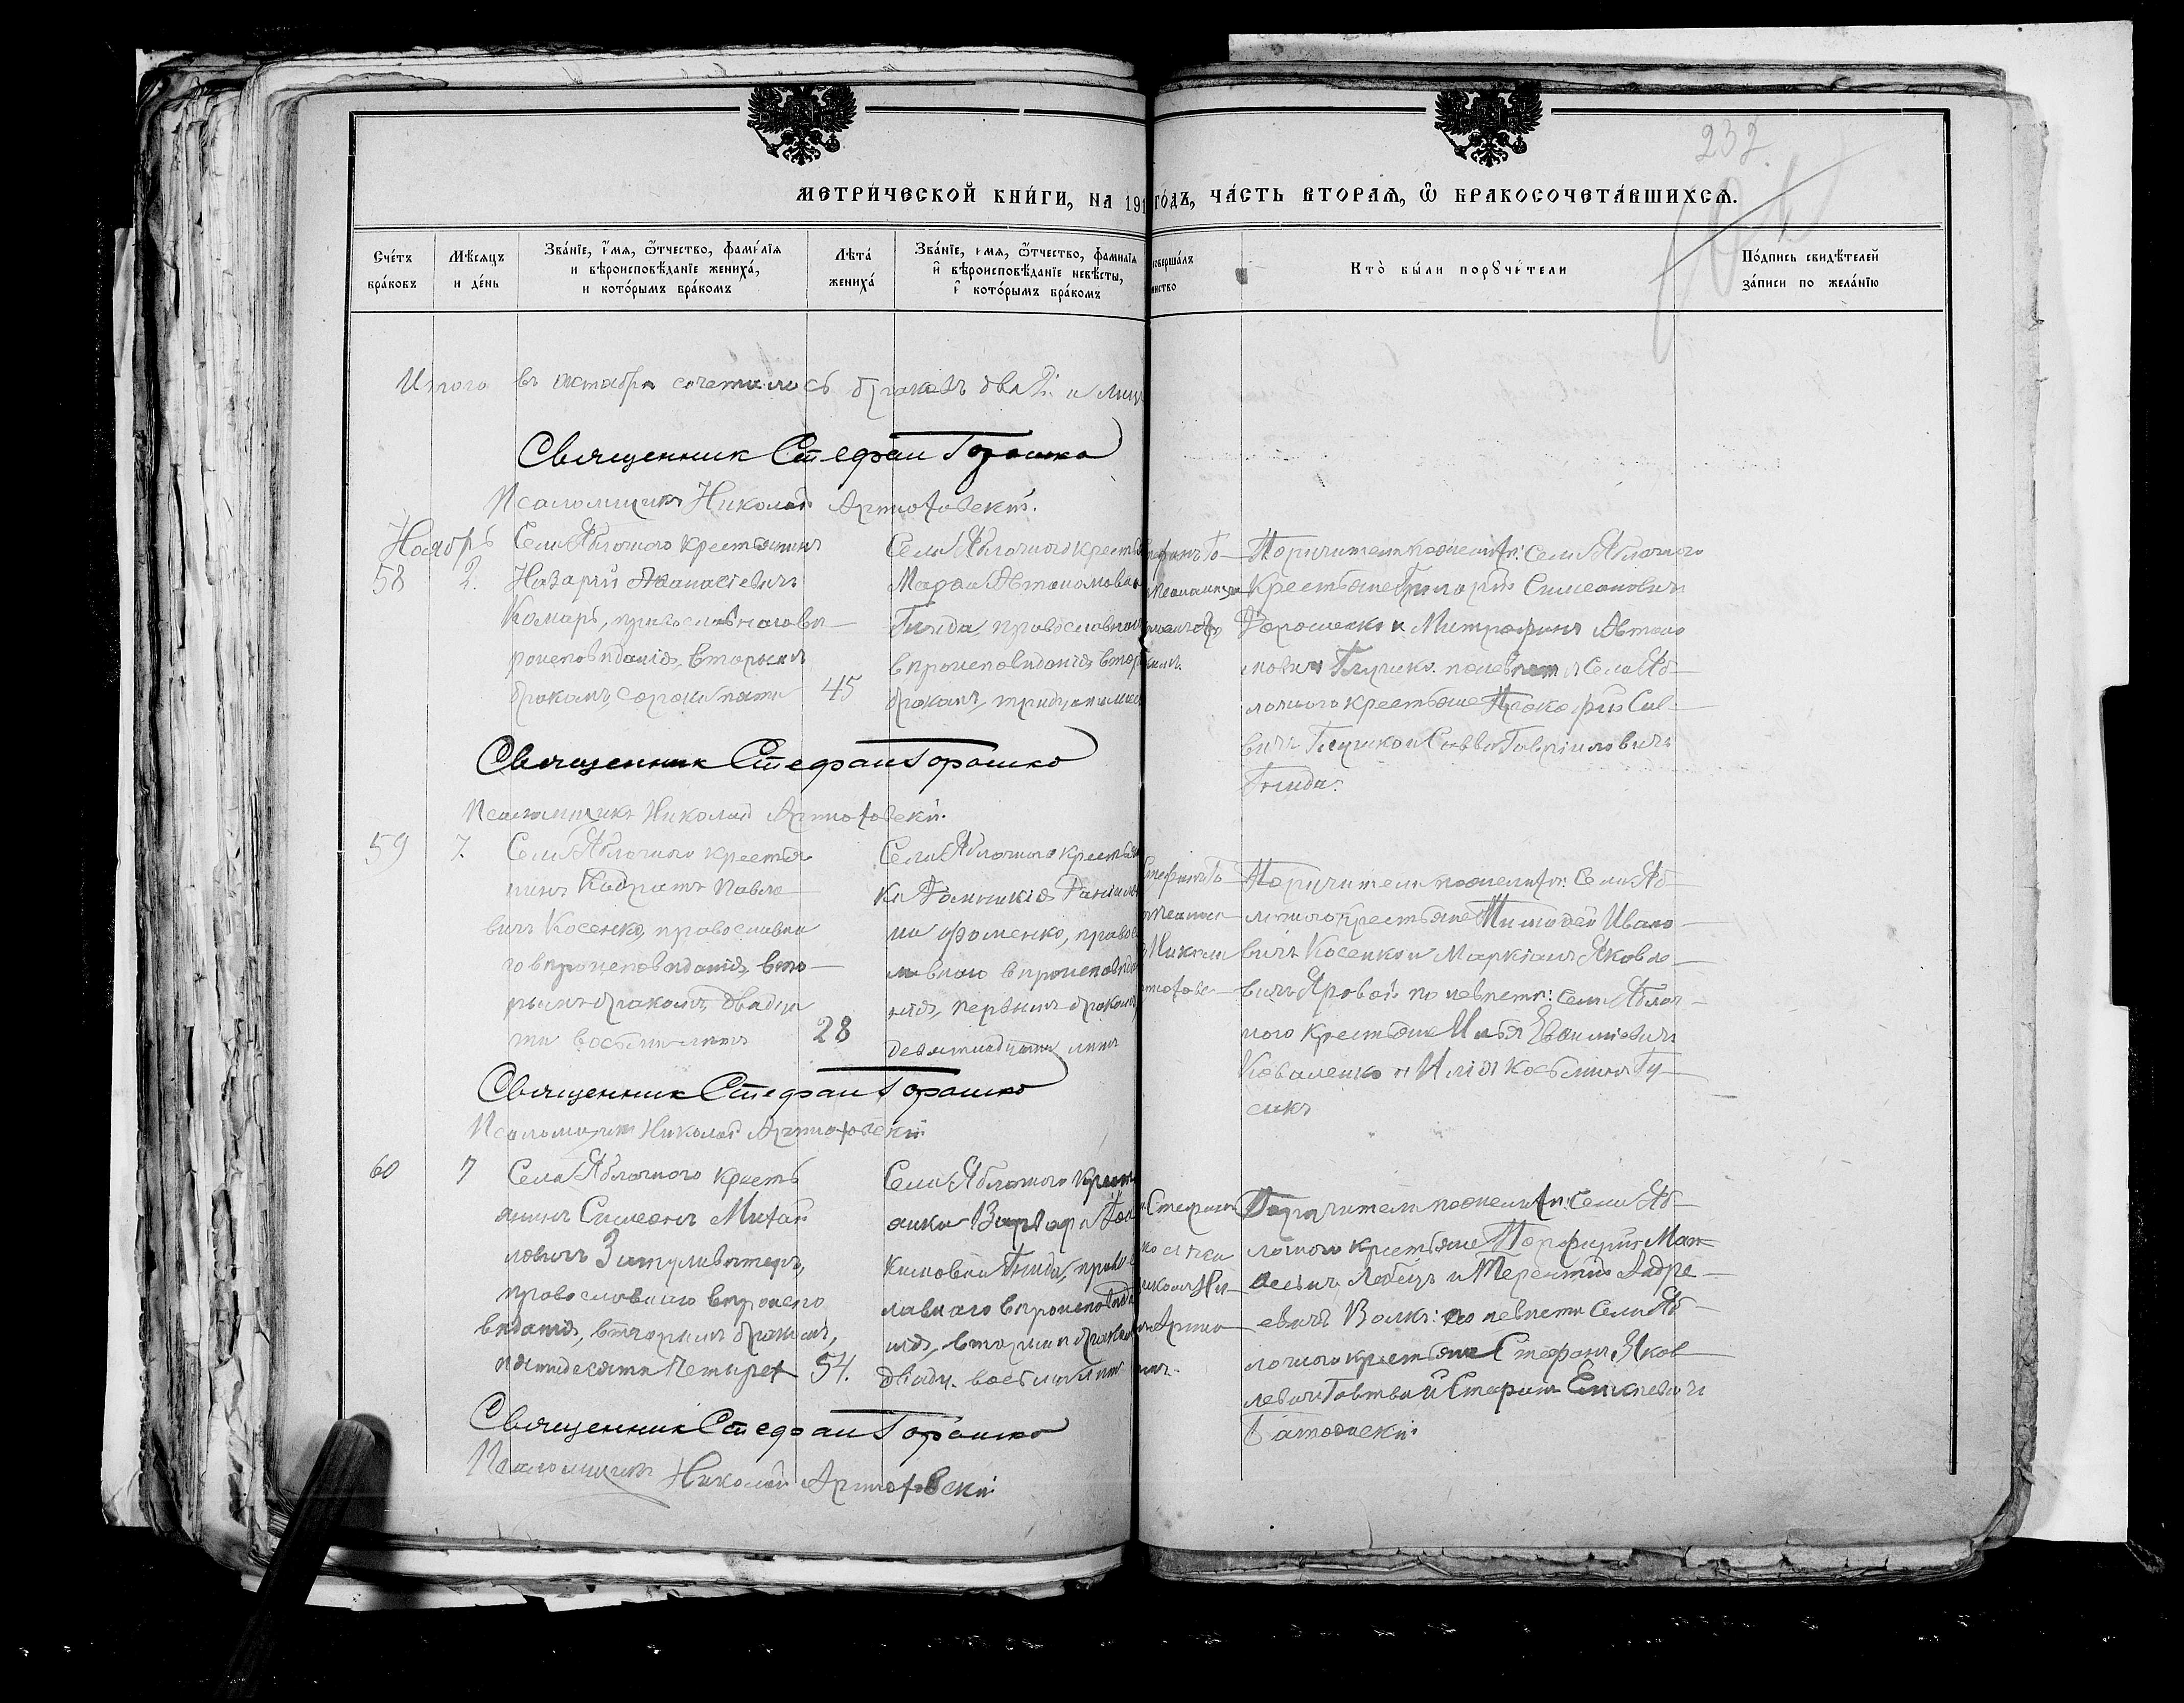 232.
МЕТРИЧЕСКОЙ КНИГИ, НА 191
ГОДЪ, ЧАСТЬ ВТОРАЯ, Ѿ БРАКОСОЧЕТАВШИХСЯ.
Счетъ браковъ
Мѣсяцъ и день
Званіе, имя, ѿтчество, фамилія
и вѣроисповѣданіе жениха,
и которымъ бракомъ
Лѣта жениха
Званіе, имя, ѿтчество, фамилія
и вѣроисповѣданіе невѣсты,
и которымъ бракомъ
совершалъ
Кто были порꙋчители
Подпись свидѣтелей
записи по желанію
Итого въ октябрѣ сочеталось браковъ два 2: и лиц
Священник Стефан Горошко
Псаломщикъ Николай
Ноябрь
58
2.
Села Яблочного крестьянинъ
Назарій Аѳанасіевичъ
Комаръ, православнаго вѣ
роисповѣданія, вторымъ
бракомъ, сорока пяти
45
Села Яблочного кресть
Марѳа Автономовна
Гнида, православна
вѣроисповѣданія втор
бракомъ, тридцати
Поручители по жениху: села Яблочного
крестьяне Григорій Симеоновичъ
Дорошенко и Митрофанъ Автоно
мовичъ Глушко. по невѣстѣ села Яб
лочного крестьяне Прокофій Сав
вичъ Глушко и Савва Гавріиловичъ
Гнида.
Священник Стефан Горошко
Псаломщикъ Николай
59
7.
Села Яблочного крестья
нинъ Кодратъ Павло
вичъ Косенко, православна
го вѣроисповѣданія, вто
рымъ бракомъ, двадца
ти восьми лѣтъ
28
Села Яблочного крестьян
ка Домникія Даніилов
на Фоменко, правос
лавнаго вѣроисповѣда
нія, первымъ бракомъ
девятнадцати лѣтъ
Поручители по жениху: села Яб
лочного крестьяне Тимоѳей Ивано
вичъ Косенко и Маркіанъ Яковле
вичъ Яровой по невѣстѣ: села Яблоч
ного крестьяне Илья Евѳиміевичъ
Коваленко и Илія Косьминъ Гу
сакъ
Священник Стефан Горошко
Псаломщикъ Николай
60
7
Села Яблочного кресть
янинъ Симеонъ Михаи
ловичъ Затуливѣтеръ,
православнаго вѣроиспо
вѣданія, вторымъ бракомъ,
пятидесяти четырех
54.
Села Яблочного крест
янка Варвара Іоа
кимовна Гнида, право
лавнаго вѣроисповѣда
нія, вторымъ бракомъ
двадц. восьми лѣт
Поручители по жениху: села Яб
лочного крестьяне Порфирій
и Терентій Андре
евичъ Волкъ: по невѣстѣ села Яб
лочного крестьяне Стефанъ Яков
левичъ Говтва и Стефанъ
Священник Стефан Горошко
Псаломщикъ Николай